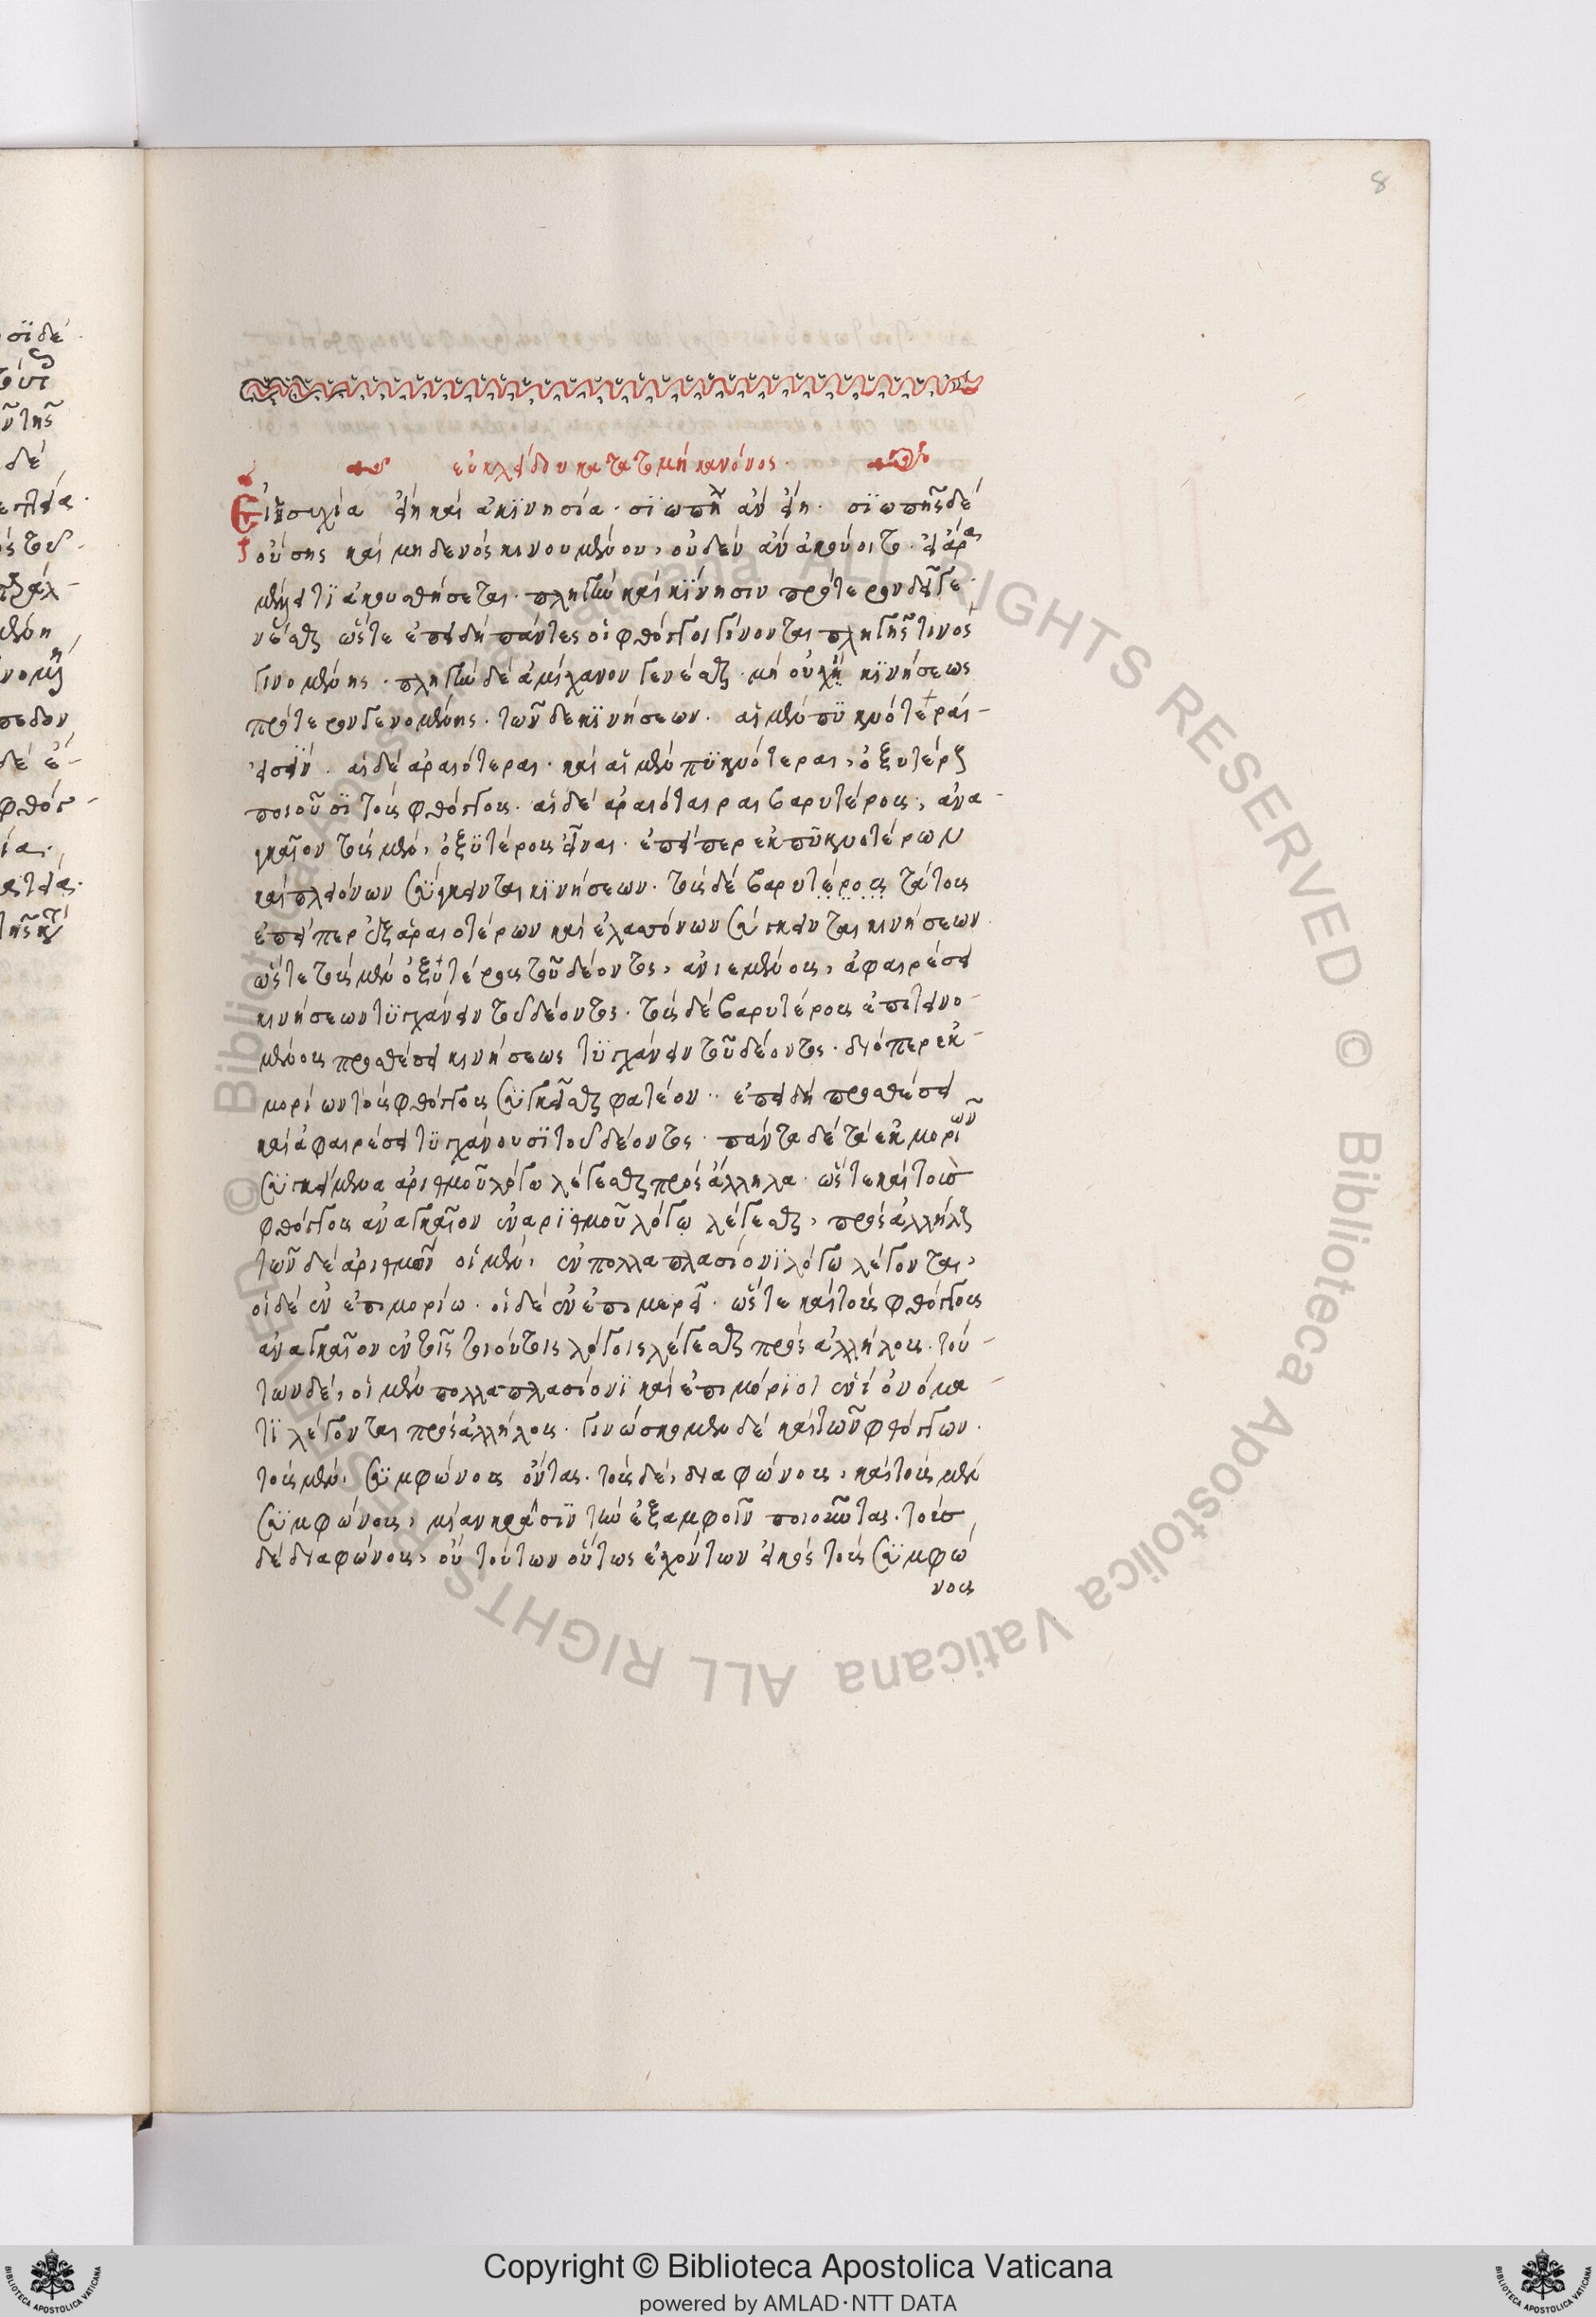 8
εὐκλείδου κατατομή κανόνος.
Εἰ ἡσυχία εἴη καί ἀκϊνησία· σϊωπὴ ἀν εἴη· σϊωπῆς δέ
οὔσης καί μηδενός κινουμένου, οὐδέν ἀν ἀκούοιτο· εἰ ἄρα
μέλλει τϊ ἀκουσθήσεται· πληγήν καί κΐνησιν πρότερον δεῖ γε
νέσθαι ὥστε ἐπειδή πάντες οἱ φθόγγοι γίνονται πληγῆς τινός
γινομένης· πληγήν δέ ἀμήχανον γενέσθαι· μή οὐχί κϊνήσεως
πρότερον γενομένης· τῶν δε κϊνήσεων· αἱ μέν πϋκνότεραί
εἰσϊν· αἱ δέ ἀραιότεραι· καί αἱ μέν πϋκνότεραι, ὀξυτέρους
ποιοῦσϊ τούς φθόγγους· αἱ δέ ἀραιόταιραι βαρυτέρους, ἀνα
γκαῖον τούς μέν, ὀξϋτέρους εἶναι· ἐπείπερ ἐκ πϋκνοτέρων
καί πλειόνων σϋγκεινται κϊνήσεων· τούς δέ βαρυτέρους τάτους
ἐπείπερ ἐξ ἀραιοτέρων καί ἐλασσόνων σύγκεινται κινήσεων
ὥστε τούς μέν ὀξϋτέρους τοῦ δέοντος, ἀνιεμένους, ἀφαιρέσει
κινήσεων τϋγχάνειν τοῦ δέοντος· τούς δέ βαρυτέρους ἐπιτεινο
μένους προσθέσει κινήσεως τϋγχάνειν τοῦ δέοντος· διόπερ ἐκ
μορίων τούς φθόγγους σϋγκεῖσθαι φατέον· ἐπειδή προσθέσει
καί ἀφαιρέσει τϋγχάνουσϊ τοῦ δέοντος· πάντα δέ τά ἐκ μορίων
σϋγκείμενα ἀριθμοῦ λόγω λέγεσθαι πρός ἄλληλα· ὥστε καί τούς
φθόγγους ἀναγκαῖον ἐν ἀρϊθμοῦ λόγῳ λέγεσθαι, πρός ἀλλήλους
τῶν δέ ἀριθμῶν οἱ μέν, ἐν πολλαπλασίονϊ λόγω λέγονται,
οἱ δέ ἐν ἐπιμορίω· οἱ δέ ἐν ἐπιμερεῖ· ὥστε καί τούς φθόγγους
ἀναγκαῖον ἐν τοῖς τοιούτοις λόγοις λέγεσθαι πρός ἀλλήλους· τού
των δέ, οἱ μέν πολλαπλασίονϊ καί ἐπιμόρϊοι ἑνί ὀνόμα
τϊ λέγονται πρός ἀλλήλους· γινώσκομεν δέ καί τῶν φθόγγων·
τούς μέν, σϋμφώνους ὄντας· τούς δέ, διαφώνους, καί τούς μέν
σϋμφώνους, μίαν κρᾶσϊν τήν ἐξ ἀμφοῖν ποιοῦντας· τούς
δέ διαφώνους, οὔ τούτων οὕτως ἐχόντων εἰκός τούς σϋμφώ
νους
Copyright © Biblioteca Apostolica Vaticana
powered by AMLAD·NTT DATA
© Biblioteca Apostolica Vaticana ALL RIGHTS RESERVED